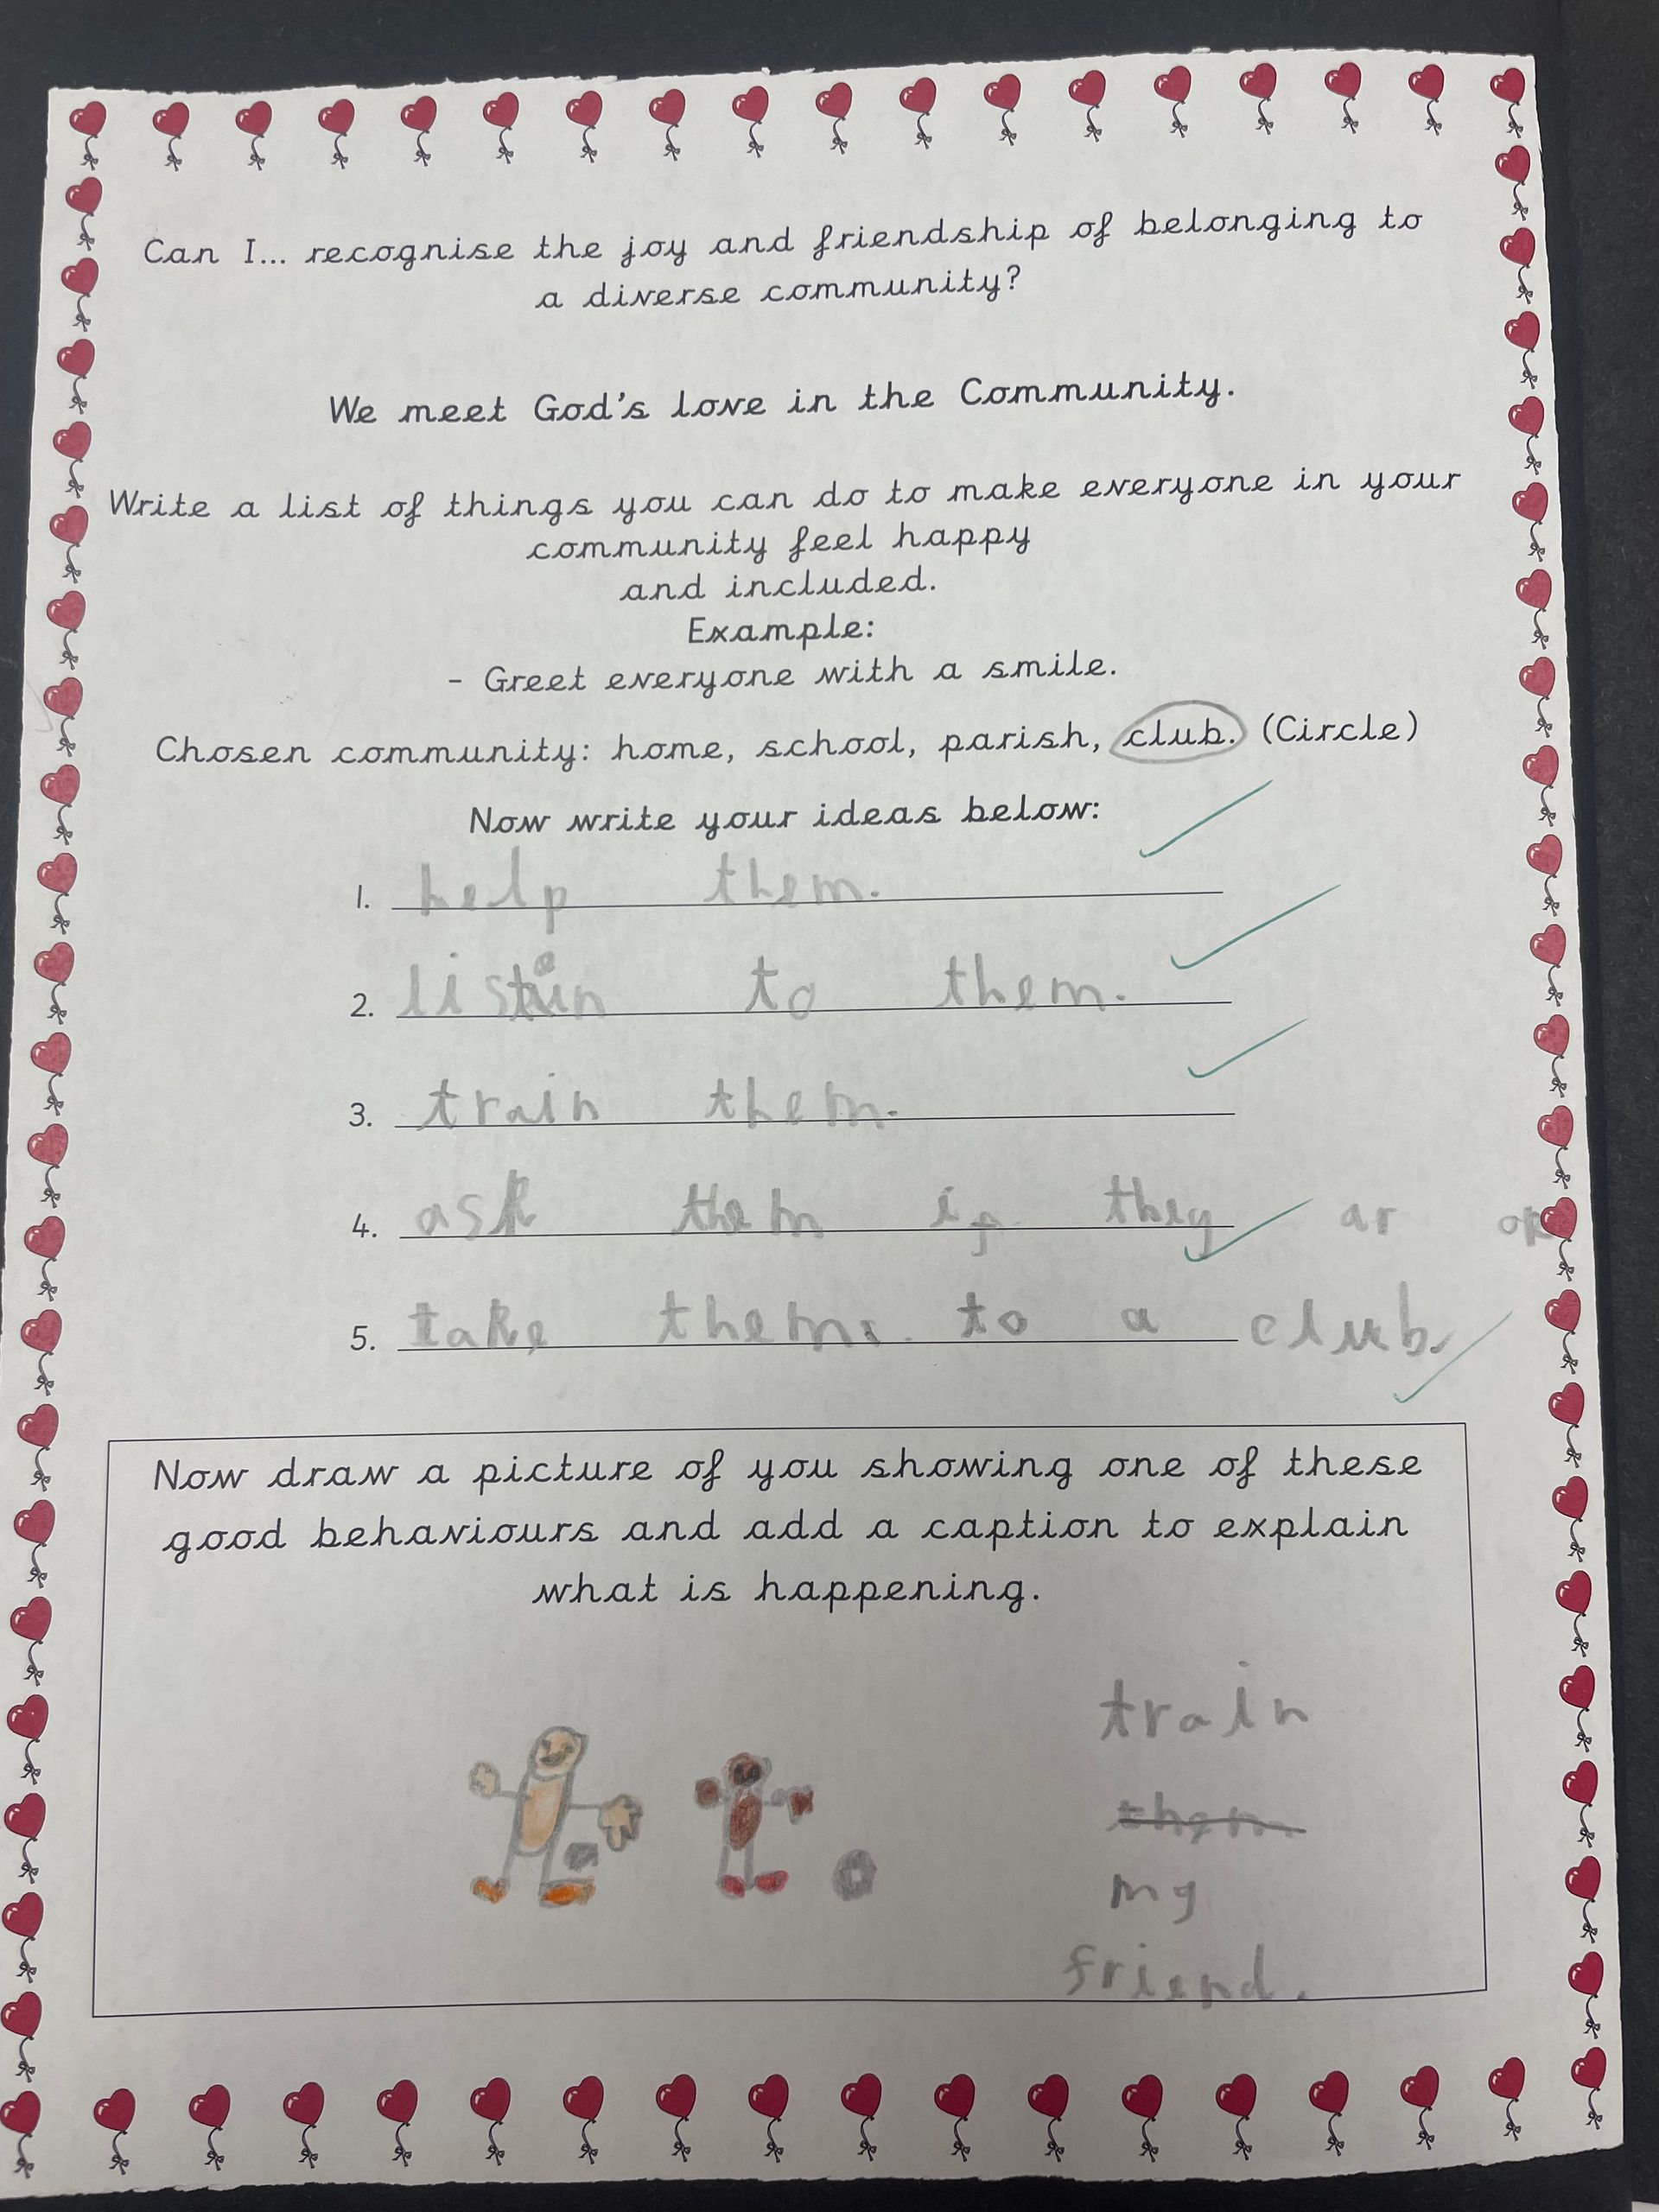 Can I... recognise the joy and friendship of belonging to
a diverse community?
We meet God's love in the Community.
Write a list of things you can do to make everyone in your
community feel happy
and included.
Example:
- Greet everyone with a smile.
Chosen community: home, school, parish, club. (Circle)
Now write your ideas below:
1. help them.
2. listen to them.
3. train them.
4. ask them if they ar ok
5. take them. to a club.
Now draw a picture of you showing one of these
good behaviours and add a caption to explain
what is happening.
train
them
my
friend.